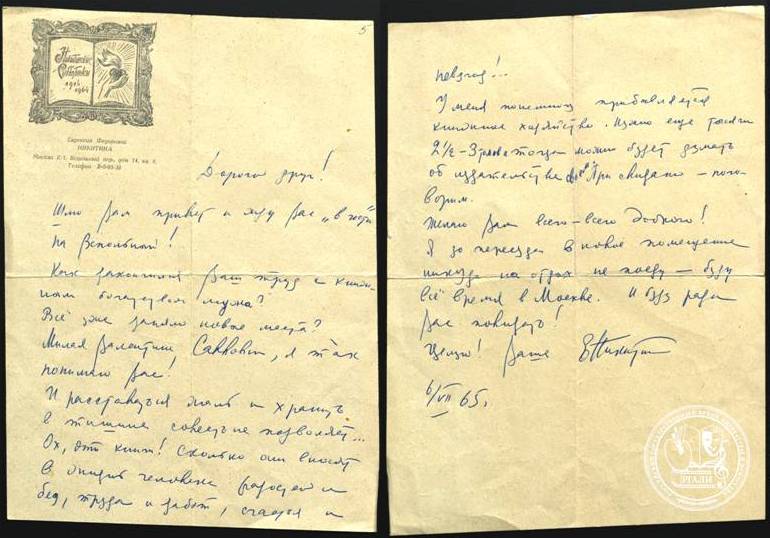 5
Никитинские
Субботники
1914
1964
Евдоксия Федоровна
НИКИТИНА
Москва К-1, Вспольный пер., дом 14, кв. 8.
Телефон
Дорогой друг!
Шлю Вам привет и жду Вас „в гости"
на Вспольный!
Как закончился Ваш труд с книж-
ным богатством мужа?
Всё уже заняло новые места?
Милая Валентина Саввовна, я так
понимаю Вас!
И расставаться жаль и хранить
в тишине совесть не позволяет...
Ох, эти книги! Сколько они вносят
в бытие человека радостей и
бед, труда и забот, счастья и
невзгод!...
У меня понемногу прибавляется
книжное хозяйство. Нужно еще тысячи
2½-3 тома и тогда можно будет думать
об издательстве При свидании – пого-
ворим.
Желаю Вам всего-всего доброго!
Я до переезда в новое помещение
никуда на отдых не поеду – буду
всё время в Москве. И буду рада
Вас повидать!
Целую! Ваша ЕНикитина
6/VII 65г.
ЛГАЛИ